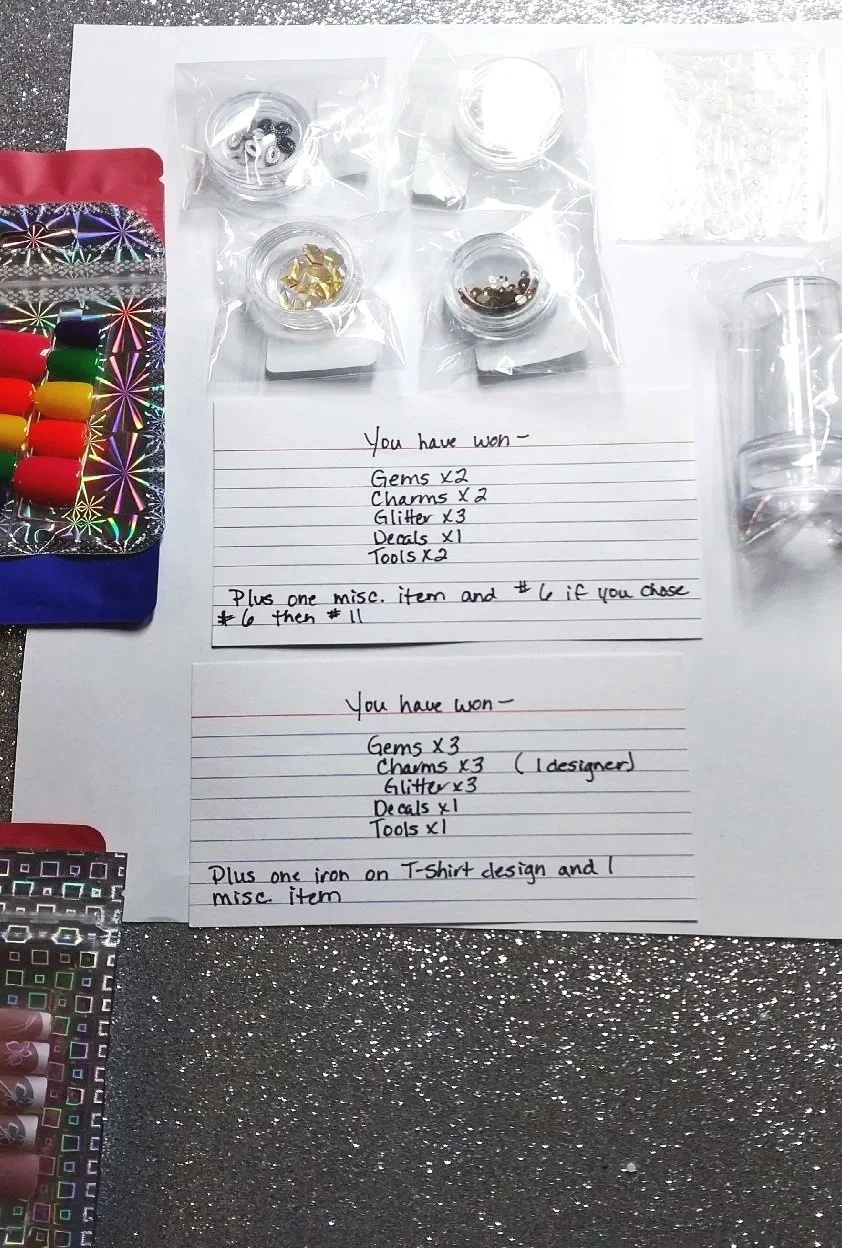 You have won-
Gems x2
Charms x2
Glitter x3
Decals x1
Tools x2
Plus one misc. item and #6 if you chose
#6 then #11
You have won-
Gems x3
Charms x3 (1 designer)
Glitter x3
Decals x1
Tools x1
Plus one iron on T-Shirt design and 1
misc. item